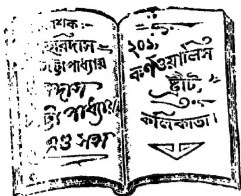 প্রকাশক:—
হরিদাস
চট্টোপাধ্যায়
গুরুদাস
চট্টোপাধ্যায়
এণ্ড সন্স
২০১,
কর্ণওয়ালিস
ষ্ট্রীট,
কলিকাতা।